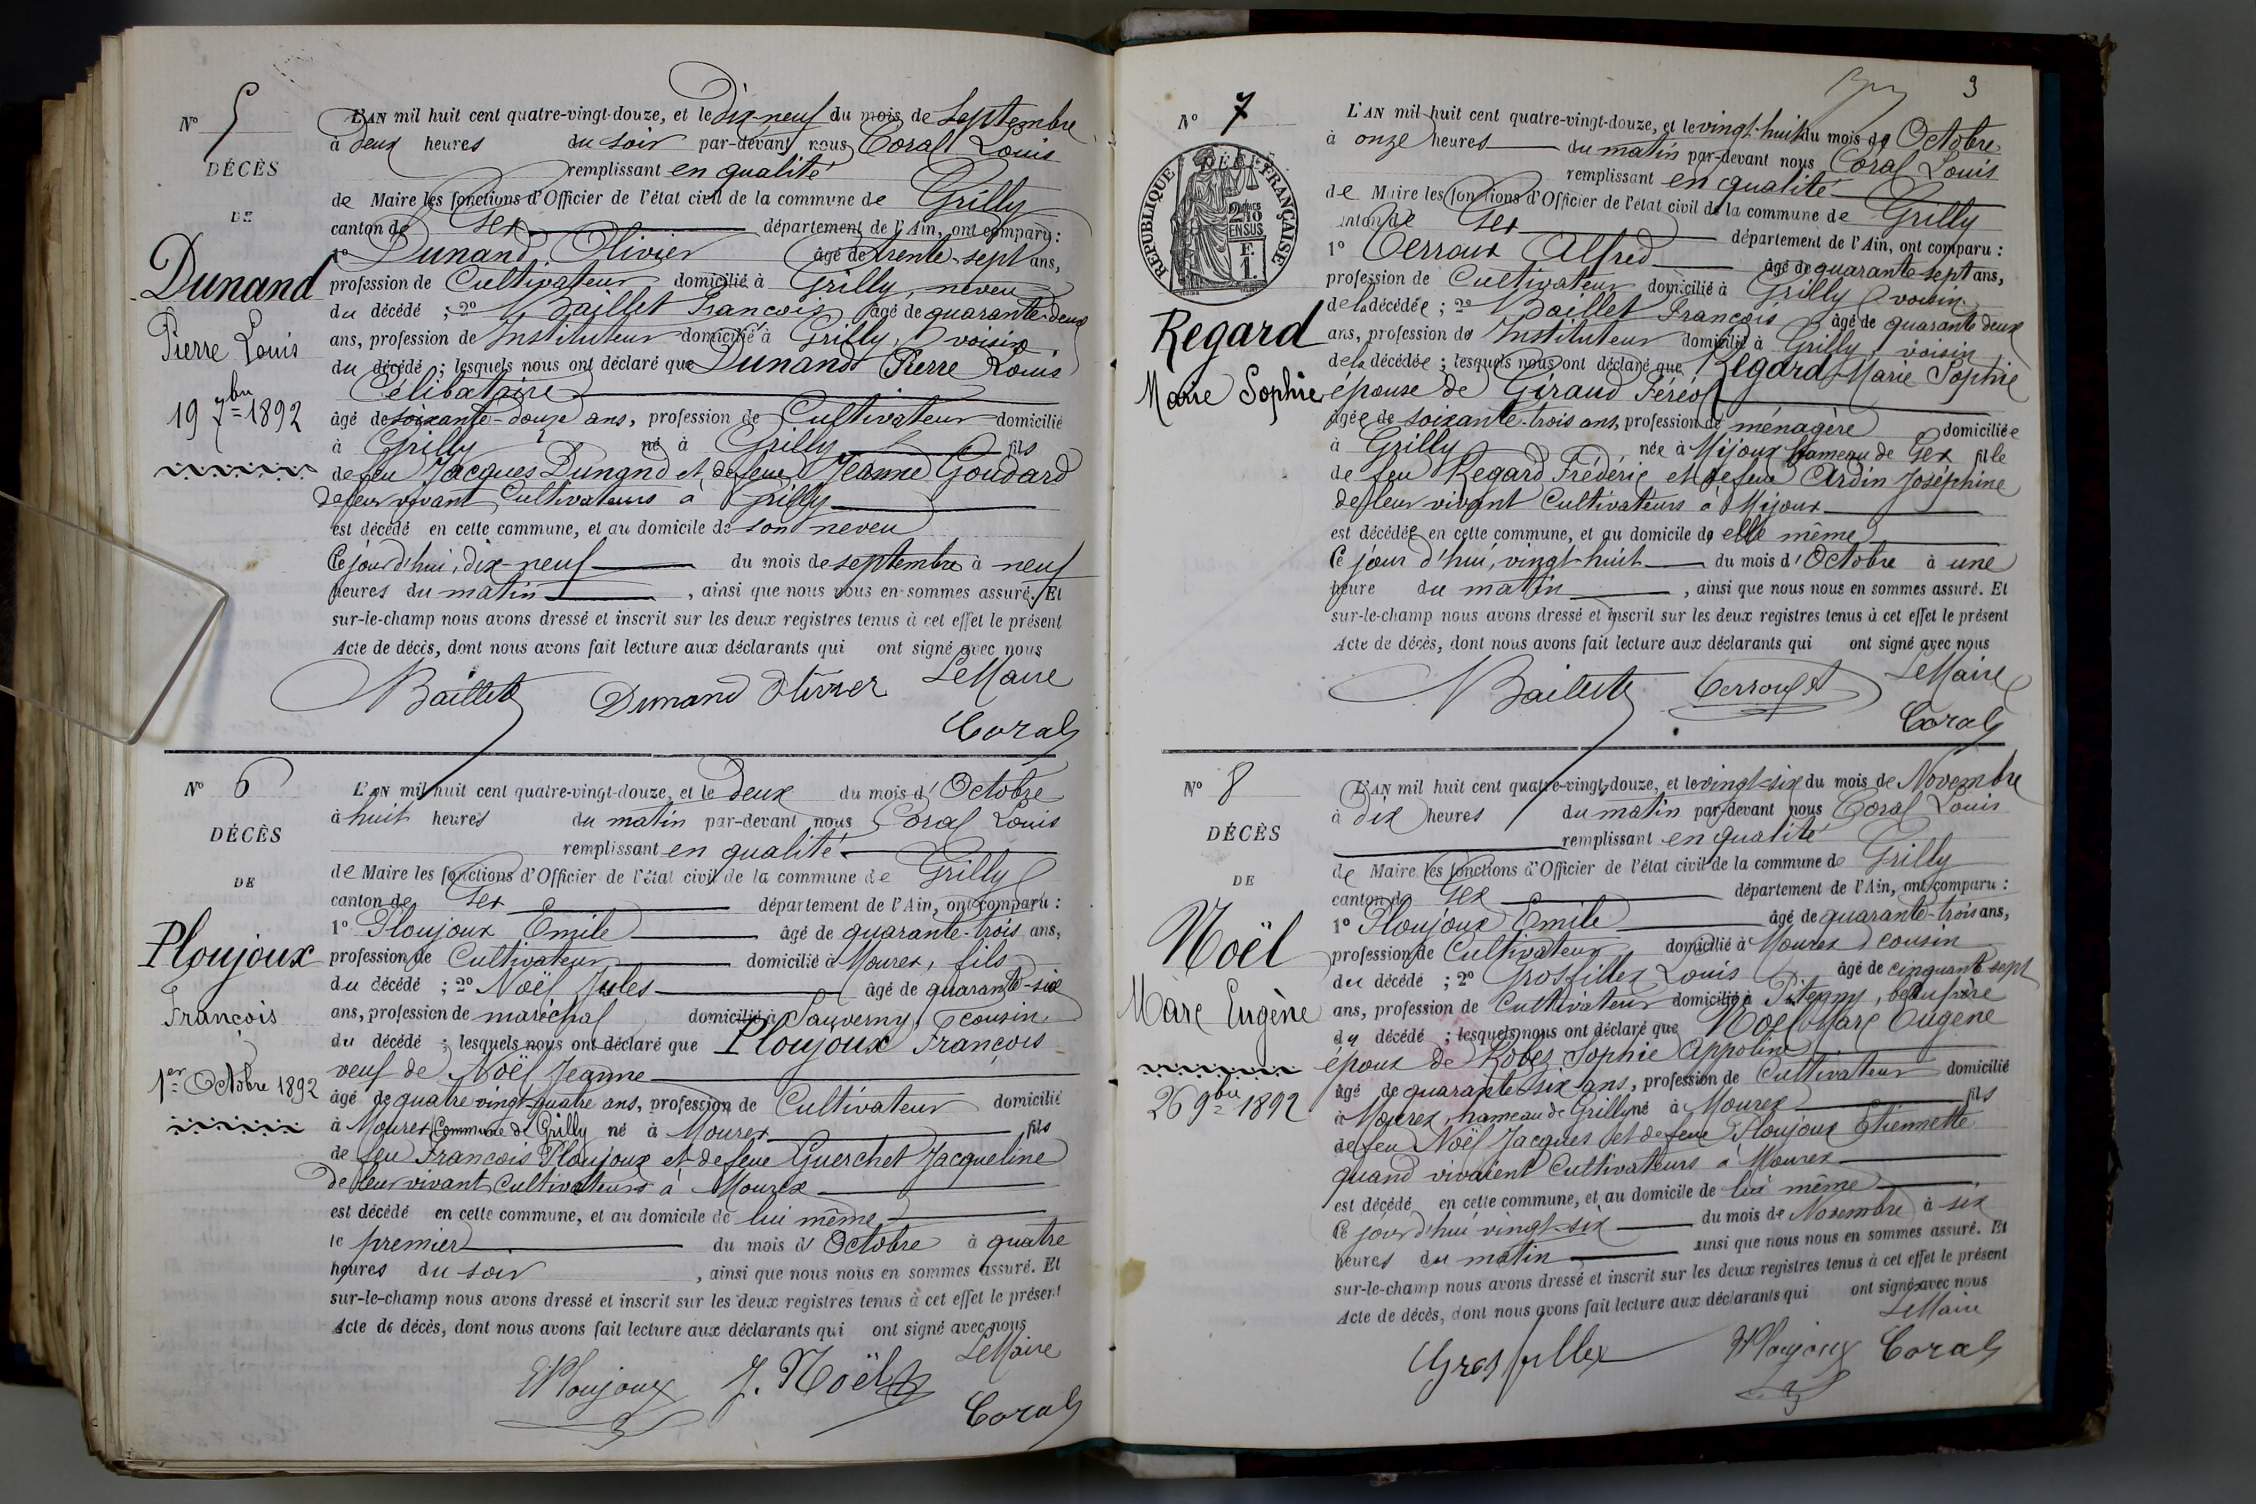 N° 5
DÉCÈS
DE
Dunand
Pierre Louis
19 7bre 1892
L'AN mil huit cent quatre-vingt-douze, et le dix-neuf du mois de Septembre
à deux heures du soir par-devant nous Coral Louis
remplissant en qualité
de Maire les fonctions d'Officier de l'état civil de la commune de Grilly
canton de Gex département de l'Ain, ont comparu :
1° Dunand Olivier âgé de trente-sept ans,
profession de Cultivateur domicilié à Grilly, neveu
du décédé ; 2° Baillet François âgé de quarante-deux
ans, profession de Instituteur domicilié à Grilly, voisin
du décédé ; lesquels nous ont déclaré que Dunand Pierre Louis
Célibataire
âgé de soixante-douze ans, profession de Cultivateur domicilié
à Grilly né à Grilly fils
de feu Jacques Dunand et de feue Jeanne Goudard
de leur vivant Cultivateurs à Grilly
est décédé en cette commune, et au domicile de son neveu
Ce jour d'hui, dix-neuf du mois de septembre à neuf
heures du matin , ainsi que nous nous en sommes assuré. Et
sur-le-champ nous avons dressé et inscrit sur les deux registres tenus à cet effet le présent
Acte de décès, dont nous avons fait lecture aux déclarants qui ont signé avec nous
Le Maire
Baillet Dunand Olivier
Coral
N° 6
DÉCÈS
DE
Ploujoux
François
1er Octobre 1892
L'AN mil huit cent quatre-vingt-douze, et le deux du mois d' Octobre
à huit heures du matin par-devant nous Coral Louis
remplissant en qualité
de Maire les fonctions d'Officier de l'état civil de la commune de Grilly
canton de Gex département de l'Ain, ont comparu :
1° Ploujoux Emile âgé de quarante-trois ans,
profession de Cultivateur domicilié à Mourex, fils
du décédé ; 2° Noël Jules âgé de quarante-six
ans, profession de maréchal domicilié à Sauverny, cousin
du décédé ; lesquels nous ont déclaré que Ploujoux François
veuf de Noël Jeanne
âgé de quatre vingt-quatre ans, profession de Cultivateur domicilié
à Mourex Commune de Grilly né à Mourex fils
de feu François Ploujoux et de feue Guerchet Jacqueline
de leur vivant Cultivateurs à Mourex
est décédé en cette commune, et au domicile de lui même
le premier du mois d' Octobre à quatre
heures du soir , ainsi que nous nous en sommes assuré. Et
sur-le-champ nous avons dressé et inscrit sur les deux registres tenus à cet effet le présent
Acte de décès, dont nous avons fait lecture aux déclarants qui ont signé avec nous
Le Maire
E Ploujoux J. Noël
Coral
3
N° 7
RÉPUBLIQUE FRANÇAISE
2/10 EN SUS
F.
1.
Regard
Marie Sophie
L'AN mil huit cent quatre-vingt-douze, et le vingt-huit du mois de Octobre
à onze heures du matin par-devant nous Coral Louis
remplissant en qualité
de Maire les fonctions d'Officier de l'état civil de la commune de Grilly
canton de Gex département de l'Ain, ont comparu :
1° Cerroux Alfred âgé de quarante-sept ans,
profession de Cultivateur domicilié à Grilly voisin
de la décédée ; 2° Baillet François âgé de quarante deux
ans, profession de Instituteur domicilié à Grilly, voisin
de la décédée ; lesquels nous ont déclaré que Regard Marie Sophie
épouse de Giraud Féréol
âgée de soixante-trois ans, profession de ménagère domiciliée
à Grilly née à Mijoux hameau de Gex fille
de feu Regard Frédéric et de feue Ardin Joséphine
de leur vivant Cultivateurs à Mijoux
est décédée en cette commune, et au domicile de elle même
Ce jour d'hui, vingt-huit du mois d' Octobre à une
heure du matin , ainsi que nous nous en sommes assuré. Et
sur-le-champ nous avons dressé et inscrit sur les deux registres tenus à cet effet le présent
Acte de décès, dont nous avons fait lecture aux déclarants qui ont signé avec nous
Le Maire
Baillet Cerroux A
Coral
N° 8
DÉCÈS
DE
Noël
Marc Eugène
26 9bre 1892
L'AN mil huit cent quatre-vingt-douze, et le vingt-six du mois de Novembre
à dix heures du matin par-devant nous Coral Louis
remplissant en qualité
de Maire les fonctions d'Officier de l'état civil de la commune de Grilly
canton de Gex département de l'Ain, ont comparu :
1° Ploujoux Emile âgé de quarante-trois ans,
profession de Cultivateur domicilié à Mourex cousin
du décédé ; 2° Grosfillex Louis âgé de cinquante sept
ans, profession de Cultivateur domicilié à Pitegny, beaufrère
du décédé ; lesquels nous ont déclaré que Noël Marc Eugène
époux de Robez Sophie Appoline
âgé de quarante-six ans, profession de Cultivateur domicilié
à Mourex, hameau de Grilly né à Mourex fils
de feu Noël Jacques et de feue Ploujoux Etiennette
quand vivaient Cultivateurs à Mourex
est décédé en cette commune, et au domicile de lui même
Ce jour d'hui vingt-six du mois de Novembre à six
heures du matin ainsi que nous nous en sommes assuré. Et
sur-le-champ nous avons dressé et inscrit sur les deux registres tenus à cet effet le présent
Acte de décès, dont nous avons fait lecture aux déclarants qui ont signé avec nous
Le Maire
Grosfillex E Ploujoux Coral